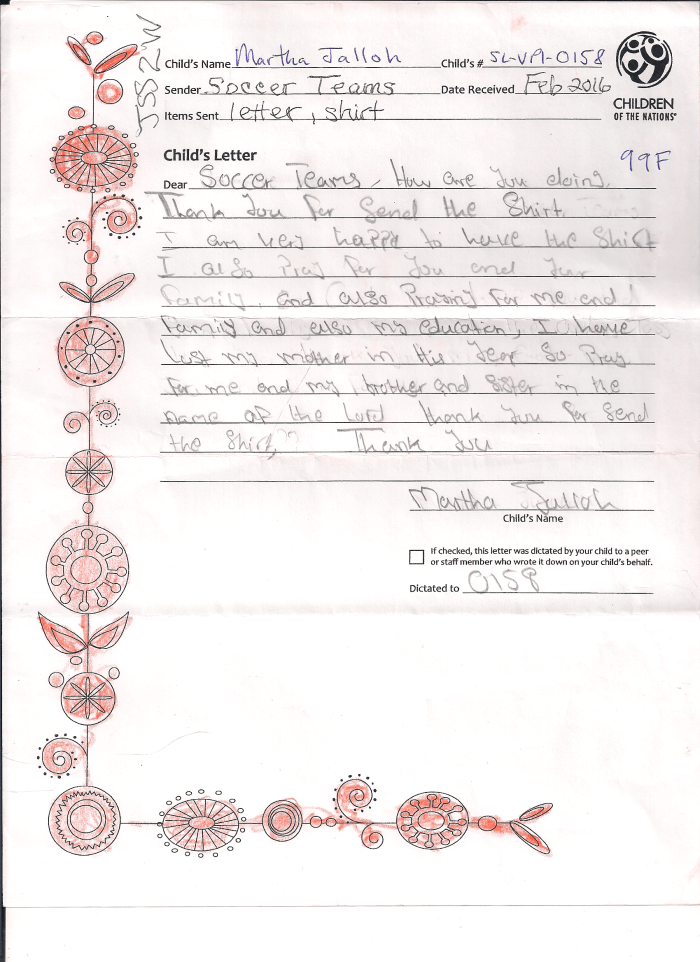 JSS2W
Child's Name Martha Jalloh Child's # SL-VPI-0158
Sender Soccer Teams Date Received Feb 2016
Items Sent letter, shirt
CHILDREN
OF THE NATIONS®
Child's Letter
99F
Dear Soccer Teams, How are you doing.
Thank you for Send the Shirt
I am very happy to have the Shirt
I also Pray for you and your
family, and also Praying for me and
family and also my education, I have
lust my mother in this year So Pray
for me and my brother and Sister in the
name of the Lord thank you for Send
the Shirt, Thank you
Martha Jalloh
Child's Name
If checked, this letter was dictated by your child to a peer
or staff member who wrote it down on your child's behalf.
Dictated to 0158